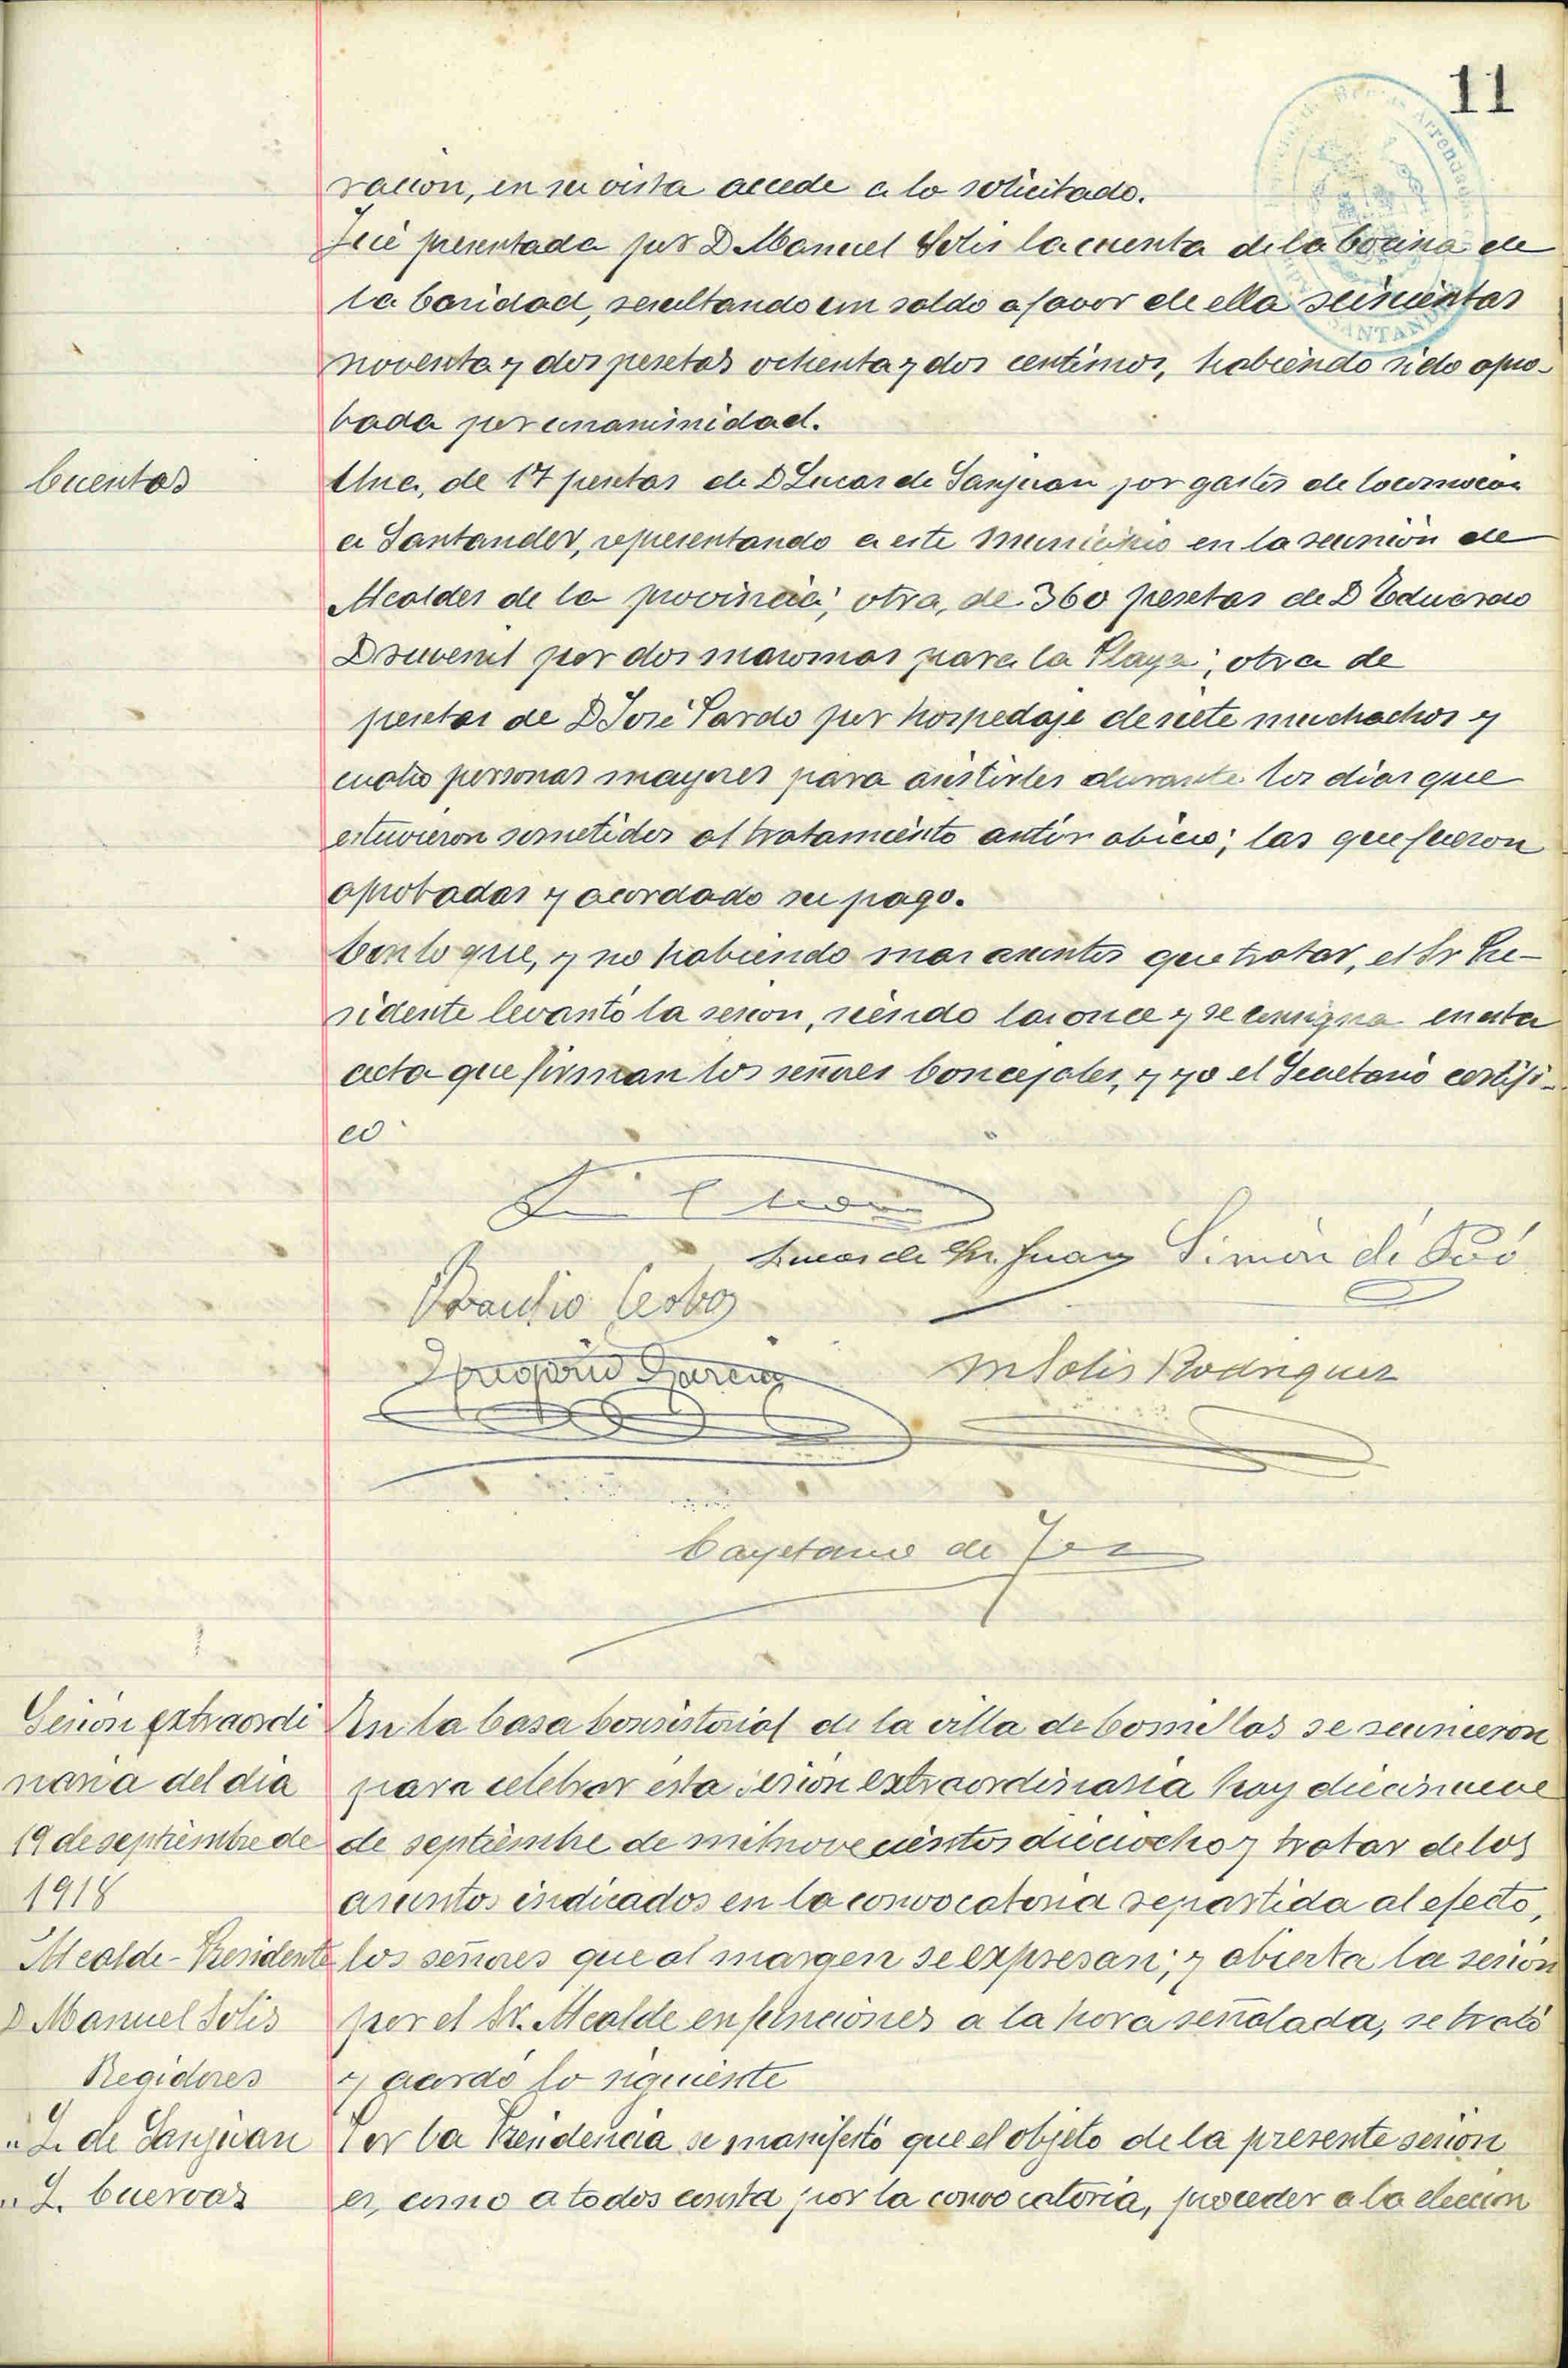 11
racion, en su vista accede a lo solicitado.
Fué presentada por D Manuel Solis la cuenta de la Cocina de
la Caridad, resultando un saldo a favor de ella seiscientas
noventa y dos pesetas ochenta y dos centimos, habiendo sido apro-
bada por unanimidad.
Cuentas
Una, de 17 pesetas de D Lucas de Sanjuan por gastos de locomocion
a Santander, representando a este Municipio en la reunión de
Alcaldes de la provincia; otra, de 360 pesetas de D Eduardo
por dos maromas para la Playa; otra de
pesetas de D José Pardo por hospedaje de siete muchachos y
cuatro personas mayores para asistirles durante los dias que
estuvieron sometidos al tratamiento antirrabico; las que fueron
aprobadas y acordado su pago.
Con lo que, y no habiendo mas asuntos que tratar, el Sr Pre-
sidente levantó la sesion, siendo las once y se consigna en esta
acta que firman los señores Concejales, y yo el Secretario certifi-
co
Lucas de Sn. Juan Simón de Poó
Braulio Cobo
Gregorio Garcia
M Solis Rodriguez
Cayetano de
Sesión extraordi
naria del dia
19 de septiembre de
1918
Alcalde-Presidente
D Manuel Solis
Regidores
" L. de Sanjuan
" L. Cuervas
En la Casa Consistorial de la villa de Comillas se reunieron
para celebrar esta sesión extraordinaria hoy diecinueve
de septiembre de mil novecientos dieciocho y tratar de los
asuntos indicados en la convocatoria repartida al efecto,
los señores que al margen se expresan; y abierta la sesión
por el Sr. Alcalde en funciones a la hora señalada, se trató
y acordó lo siguiente
Por la Presidencia se manifestó que el objeto de la presente sesion
es, como a todos consta por la convocatoria, proceder a la elección